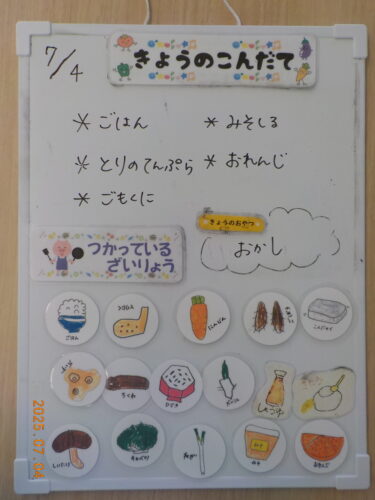 7/4
きょうのこんだて
* ごはん
* みそしる
* とりのてんぷら
* おれんじ
* ごもくに
きょうのおやつ
おかし
つかっている
ざいりょう
ごはん
にんじん
こんにゃく
ちくわ
しょうゆ
しいたけ
キャベツ
ねぎ
みそ
おれんじ
2025.07.04